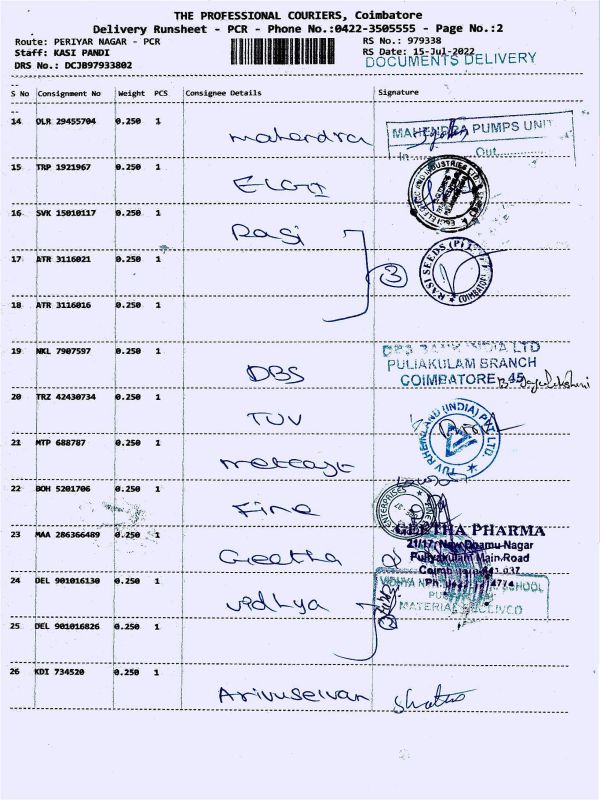 THE PROFESSIONAL COURIERS, Coimbatore
Delivery Runsheet - PCR - Phone No.:0422-3505555 - Page No.:2
Route: PERIYAR NAGAR - PCR RS No.: 979338
Staff: KASI PANDI RS Date: 15-Jul-2022
DRS No.: DCJB97933802 DOCUMENTS DELIVERY
S No Consignment No Weight PCS Consignee Details Signature
14 OLR 29455704 0.250 1 Mahendra
MAHENDRA PUMPS UNIT
In Out
15 TRP 1921967 0.250 1 ELGI
16 SVK 15010117 0.250 1 Rasi
17 ATR 3116021 0.250 1 3
RASI SEEDS (P) COIMBATORE
18 ATR 3116016 0.250 1
19 NKL 7907597 0.250 1 DBS
DBS BANK INDIA LTD
PULIAKULAM BRANCH
COIMBATORE 45
20 TRZ 42430734 0.250 1 TUV
TUV RHEINLAND (INDIA) PVT. LTD.
21 MTP 688787 0.250 1
22 BOH 5201706 0.250 1 Fine
ENTERPRISES
23 MAA 286366489 0.250 1 Geetha
GEETHA PHARMA
21/17, New Dhamu Nagar
Puliyakulam Main Road
24 DEL 901016130 0.250 1 Vidhya
SCHOOL
MATERIAL RECEIVED
25 DEL 901016826 0.250 1
26 KDI 734520 0.250 1 Arivuselvan